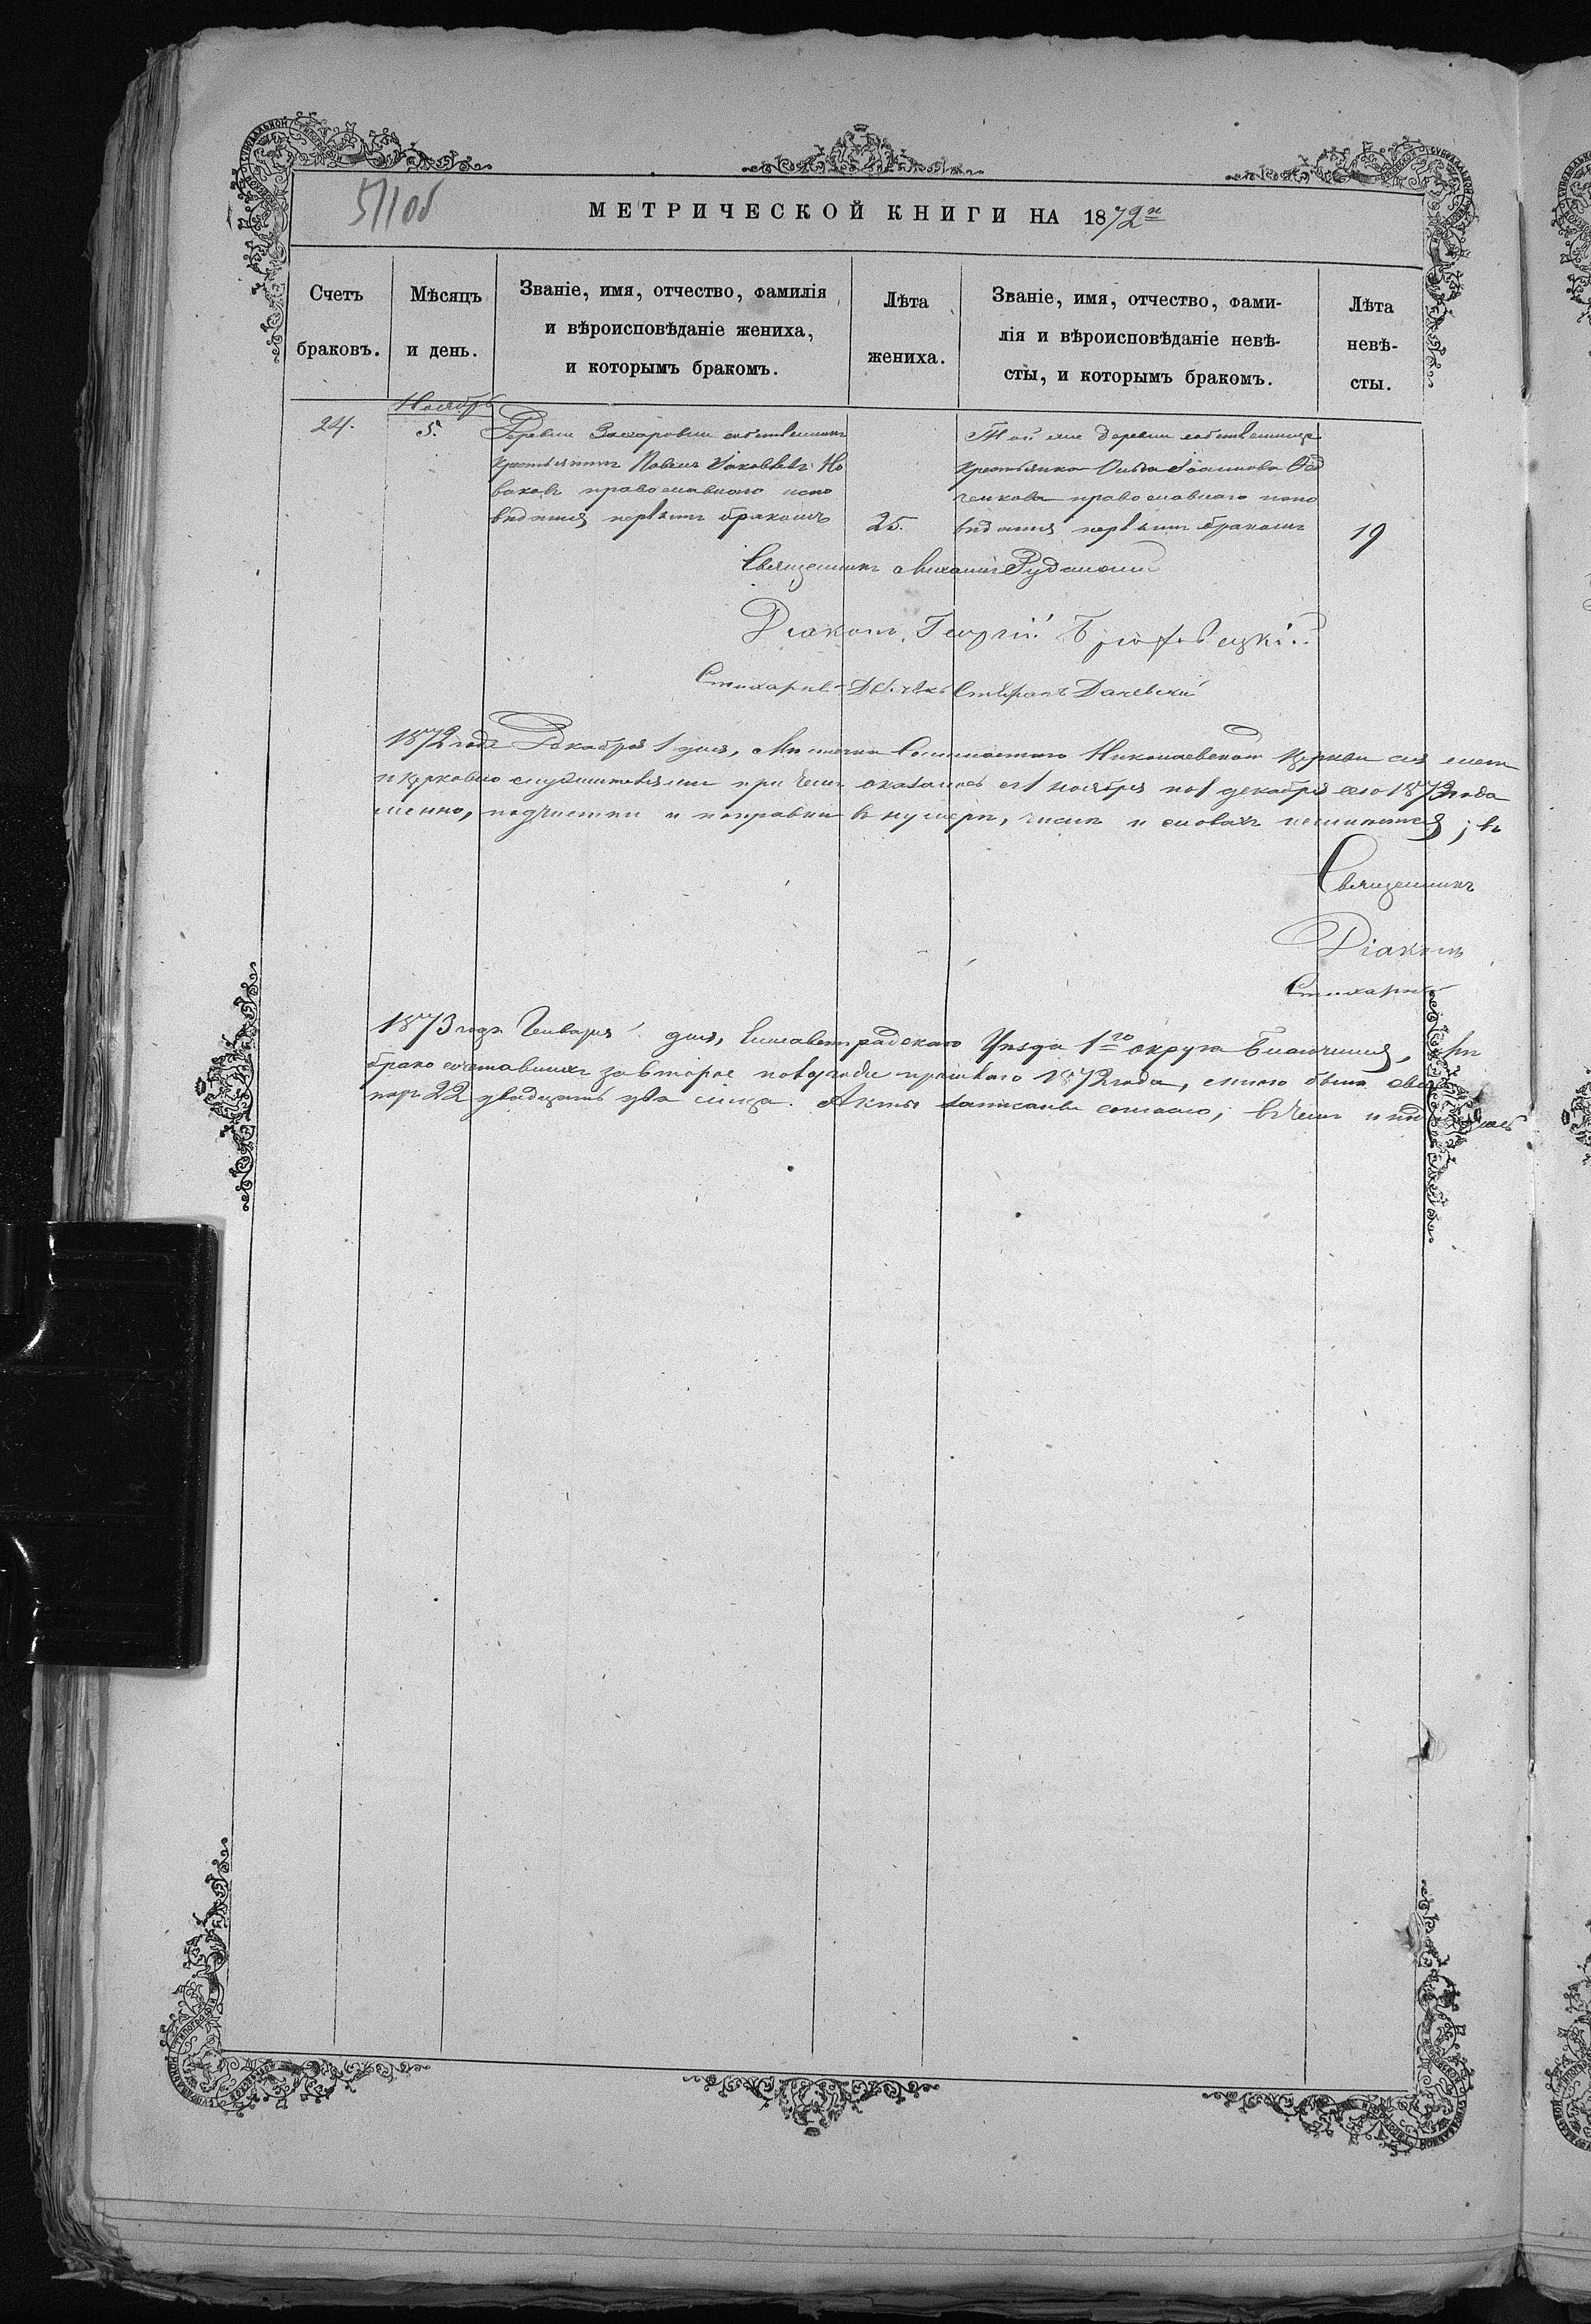 511об
МЕТРИЧЕСКОЙ КНИГИ НА 1872й
Счетъ браковъ.
Мѣсяцъ и день.
Званіе, имя, отчество, фамилія
и вѣроисповѣданіе жениха,
и которымъ бракомъ.
Лѣта жениха.
Званіе, имя, отчество, фами-
лія и вѣроисповѣданіе невѣ-
сты, и которымъ бракомъ.
Лѣта невѣ-
сты.
24.
Ноябрь
5.
Деревни Захаровки собственникъ
крестьянинъ Павелъ Іаковлевъ Но
ваковъ православнаго испо
вѣданія первымъ бракомъ
25.
Той же деревни собственница
крестьянка Ольга Іоаннова
ченкова православнаго испо
вѣданія первымъ бракомъ
19
Священникъ Рудницкій
Діаконъ Георгій
Стихарный Дьячекъ Стефанъ Дачевскій
1872 года Декабря 1 дня, Николаевской церкви сія
и церковно служителями при чемъ оказалось съ 1 ноября по 1 декабря сего 1872 года
менно, подчистки и поправки въ нумерѣ, числѣ и словахъ неимѣется; въ
Священникъ
Діаконъ
Стихарный
1873 года Генваря дня, Елисаветградскаго Уѣзда 1го округа Благочинія,
брако сочетавшихъ за второе полугодіе прошлаго 1872 года, мною была
паръ 22 двадцать два лица. Акты записаны согласно; въ чемъ и